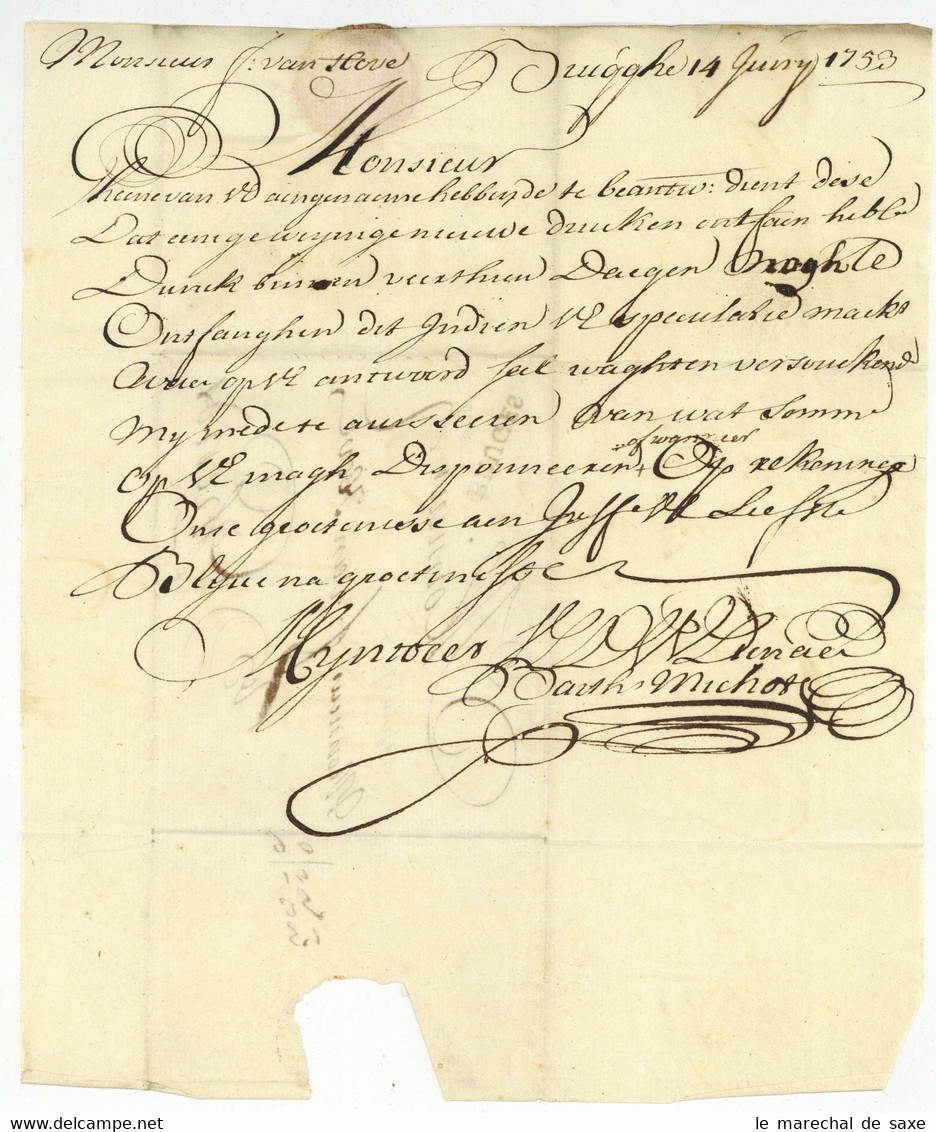 Monsieur J: van Hove Brugghe 14 Juny 1753
Monsieur
van VE aengenaeme hebbende te beantw: dient dese
Dat eenige weynige nieuwe drucken ontfaen hebbe
binnen veerthien Daegen noghte
Ontfanghen dit Indien VE speculatie maekt
op VE antwoord sal waghten versouckende
My mede te aviseeren van wat somme
of wanneer
op VE magh Disponneeren, Op rekeninge
Onse groetenisse aen Juffe VE Liefste
Blyve na groetenisse
Mynheer VE DW Dienaer
Barth: Michot
le marechal de saxe